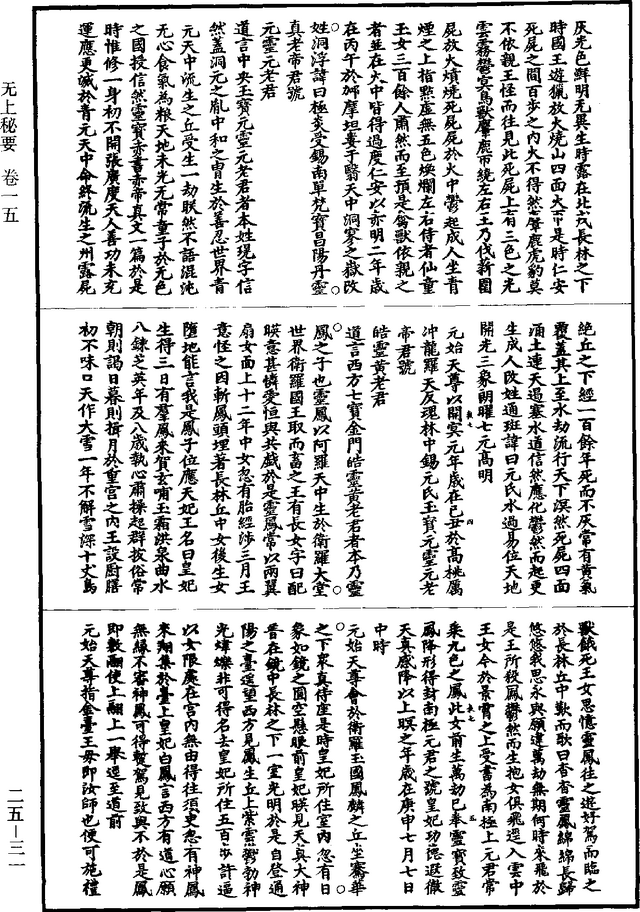 无上秘要 卷一五
二五—三一
灰光色鮮明无異生時露在北戎長林之下
時國王遊獵放火燒山四面火帀是時仁安
死屍之間百步之內火不得然麞鹿虎豹莫
不依親王怪而往見此死屍上有三色之光
雲霧鬱冥鳥獸麞鹿帀繞左右王乃伐薪圍
屍放火焚燒死屍屍於火中鬱起成人坐青
煙之上指點虛無五色煥爛左右侍者仙童
玉女三百餘人肅然而至預是禽獸依親之
者並在火中皆得過度仁安以赤明二年歲
在丙午於郍摩坦婁于翳天中洞寥之嶽改
姓洞浮諱曰極炎受錫南單梵寶昌陽丹靈
真老帝君號
元靈元老君
道言中央玉寶元靈元老君者本姓琁字信
然蓋洞元之胤中和之胄生於善忍世界青
元天中流生之丘受生一劫朕然不語混沌
无心食氣為粮天地未光无常童子於元色
之國授信然靈寶赤書赤帝真文一篇於是
時惟修一身初不開張廣度天人善功未充
運應更滅於青元天中命終流生之州露屍
絶丘之下經一百餘年死而不灰常有黃氣
覆蓋其上至水劫流行天下溟然死屍四面
涌土連天過塞水道信然應化鬱然而起更
生成人改姓通班諱曰元氏水過易位天地
開光三象朗曜七元高明
元始天尊以開冥元年歲在己丑於高桃厲
冲龍羅天反瑰林中錫元氏玉寶元靈元老
帝君號
皓靈黃老君
道言西方七寶金門皓靈黃老君者本乃靈
鳳之子也靈鳳以呵羅天中生於衛羅大堂
世界衛羅國王取而畜之王有長女字曰配
暎意甚憐愛恒與共戲於是靈鳳常以兩翼
扇女面上十二年中女忽有胎經涉三月王
意怪之因斬鳳頭埋著長林丘中女後生女
墮地能言我是鳳子位應天妃王名曰皇妃
生得三日有羣鳳來賀玄哺玉霜洪泉曲水
八錬芝英年及八歲執心肅操超群拔俗常
朝則謁日暮則揖月於重宮之內王設廚膳
初不味口天作大雪一年不解雪深十丈鳥
獸餓死王女思憶靈鳳往之遊好駕而臨之
於長林丘中歎而歌曰杳杳靈鳳綿綿長歸
悠悠我思永與願違萬劫無期何時來飛於
是王所殺鳳鬱然而生抱女俱飛逕入雲中
王女今於景霄之上受書為南極上元君常
乘九色之鳳此女前生萬劫已奉靈寶致靈
鳳降形得封南極元君之號皇妃功德遐徹
天真感降以上暝之年歲在庚申七月七日
中時
元始天尊會於衛羅玉國鳳麟之丘坐騫華
之下衆真侍座是時皇妃所住室內忽有日
象如鏡之圓空懸眼前皇妃暎見天真大神
普在鏡中長林之下一室光明於是自登通
陽之臺遥望西方見鳳生丘上紫雲鬱勃神
光煒爍非可得名去皇妃所住五百步許逼
以女限處在宮內無由得往須臾忽有神鳳
來翔集於臺上皇妃白鳳言西方有道心願
無緣不審神鳳可得蹔駕見致與不於是鳳
即敷翮使上翮上一舉逕至道前
元始天尊指金臺王母即汝師也便可施禮